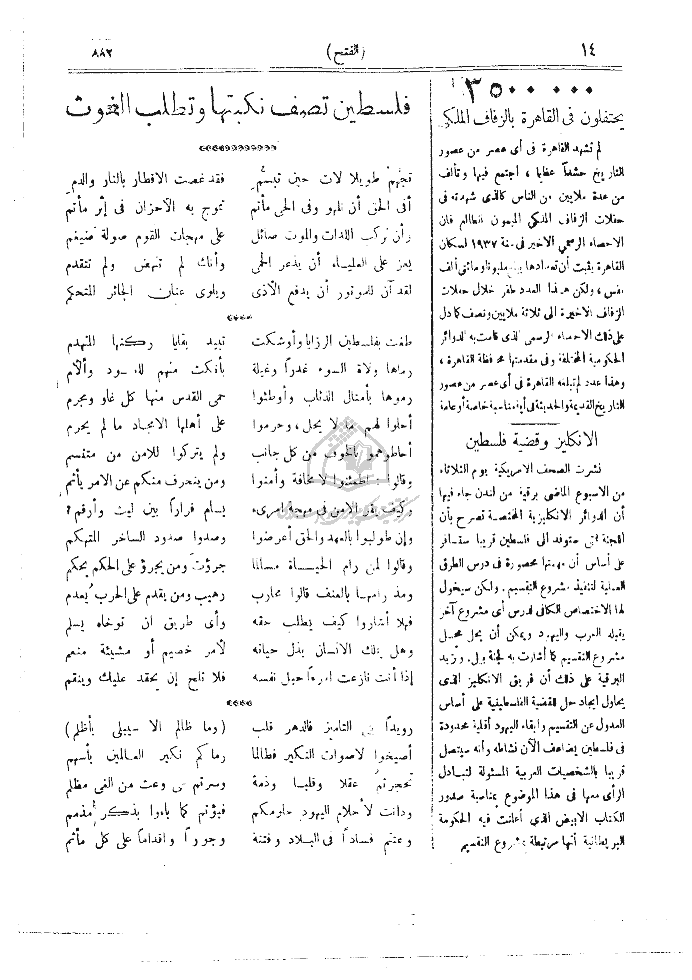 ١٤
(الفتح)
٨٨٢
٣٥٠٠٠٠٠
يحتفلون فى القاهرة بالزفاف الملكى
لم تشهد القاهرة فى أى عصر من عصور
التاريخ حشداً عظيما ، اجتمع فيها وتألف
من عدة ملايين من الناس كالذى شهدته فى
حفلات الزفاف الملكى الميمون الطالع فان
الاحصاء الرسمى الاخير فى سنة ١٩٣٧ لسكان
القاهرة يثبت أن تعدادها مليونا ومائتى ألف
نفس ، ولكن هذا العدد طفر خلال حفلات
الزفاف الاخيرة الى ثلاثة ملايين ونصف كما دل
على ذلك الاحصاء الرسمى الذى قامت به الدوائر
الحكومية المختلفة وفى مقدمتها محافظة القاهرة ،
وهذا عدد لم تبلغه القاهرة فى أى عصر من عصور
التاريخ القديمة والحديثة فى أية مناسبة خاصة أو عامة
الانكليز وقضية فلسطين
نشرت الصحف الامريكية يوم الثلاثاء
من الاسبوع الماضى برقية من لندن جاء فيها
أن الدوائر الانكليزية المختصة تصرح بأن
اللجنة التى ستوفد الى فلسطين قريبا ستسافر
على أساس أن مهمتها محصورة فى درس الطرق
العملية لتنفيذ مشروع التقسيم . ولكن سيخول
لها الاختصاص الكافى لدرس أى مشروع آخر
يقبله العرب واليهود ويمكن أن يحل محل
مشروع التقسيم كما أشارت به لجنة بيل . وتزيد
البرقية على ذلك أن فريق الانكليز الذى
يحاول ايجاد حل للقضية الفلسطينية على أساس
العدول عن التقسيم وابقاء اليهود أقلية محدودة
فى فلسطين يضاعف الآن نشاطه وأنه سيتصل
قريبا بالشخصيات العربية المسئولة لتبادل
الرأى معها فى هذا الموضوع بمناسبة صدور
الكتاب الابيض الذى أعلنت فيه الحكومة
البريطانية أنها مرتبطة بمشروع التقسيم
فلسطين تصف نكبتها وتطلب الغوث
تجهّم طويلا لات حين تبسّم فقد غصت الاقطار بالنار والدم
أفى الحق أن نلهو وفى الحى مأتم تموج به الاحزان فى إثر مأتم
وأن نركب اللذات والموت صائل على مهجات القوم صولة ضيغم
يعز على العلياء أن يذعر الحمى وأنك لم تنهض ولم تتقدم
لقد آن للموتور أن يدفع الأذى ويلوى عنان الجائر المتحكم
طغت بفلسطين الرزايا وأوشكت تبيد بقايا ركنها المتهدم
رماها ولاة السوء غدراً وغيلة بأفتك منهم لليهود وألأم
رموها بأمثال الذئاب وأوطئوا حمى القدس منها كل غاو ومجرم
أحلوا لهم ما لا يحل ، وحرموا على أهلها الامجاد ما لم يحرم
أحاطوهمو بالخوف من كل جانب ولم يتركوا للامن من متنسم
وقالوا : اطمئنوا لا مخافة وأمنوا ومن ينحرف منكم عن الامر يأثم
وكيف يقر الامن فى مهجة امرىء يسام قراراً بين ليث وأرقم؟
وإن طولبوا بالعهد والحق أعرضوا وصدوا صدود الساخر المتهكم
وقالوا لمن رام الحياة مسالما جرؤت ومن يجرؤ على الحكم يحكم
ومذ رامها بالعنف قالوا محارب رهيب ومن يقدم على الحرب يُعدم
فهلا أشاروا كيف يطلب حقه وأى طريق ان توخاه يسلم
وهل يملك الانسان بذل حياته لأمر خصيم أو مشيئة منعم
إذا أنت نازعت امرءاً حبل نفسه فلا تلح إن يحقد عليك وينقم
رويداً بنى التاميز فالدهر قلب (وما ظالم الا سيبلى بأظلم)
أصيخوا لاصوات النكير فطالما رماكم نكير العالمين بأسهم
تحجرتمُ عقلا وقلبا وذمة وسرتم على وعث من الغى مظلم
ودانت لأحلام اليهود حلومكم فبؤتم كما باءوا بذكر مذمم
وعثتم فساداً فى البلاد وفتنة وجوراً واقداما على كل مأثم